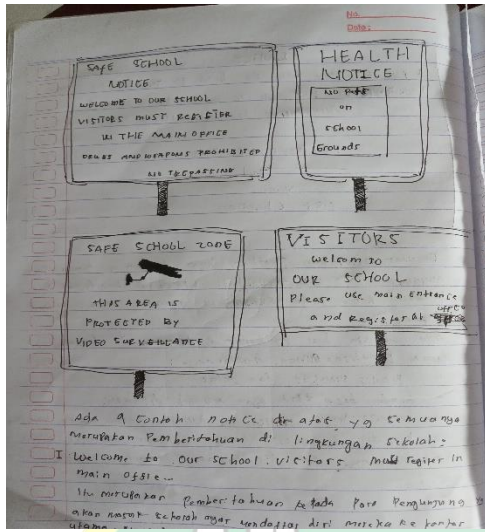 No.
Date:
SAFE SCHOOL
NOTICE
WELCOME TO OUR SCHOOL
VISITORS MUST REGISTER
IN THE MAIN OFFICE
DRUGS AND WEAPONS PROHIBITED
NO TRESPASSING
HEALTH
NOTICE
NO
on
school
Grounds
SAFE SCHOOL ZONE
THIS AREA IS
PROTECTED BY
VIDEO SURVEILLANCE
VISITORS
welcom to
OUR SCHOOL
Please use main Entrance
and Register at office
Ada 4 contoh notice di atas, yg semuanya
merupakan Pemberitahuan di lingkungan sekolah:
I Welcome to our school. visitors must regiter in
main offie...
Itu merupakan Pemberitahuan kepada Para Pengunjung yg
akan masuk sekolah agar mendaftar diri mereka ke kantor
utama